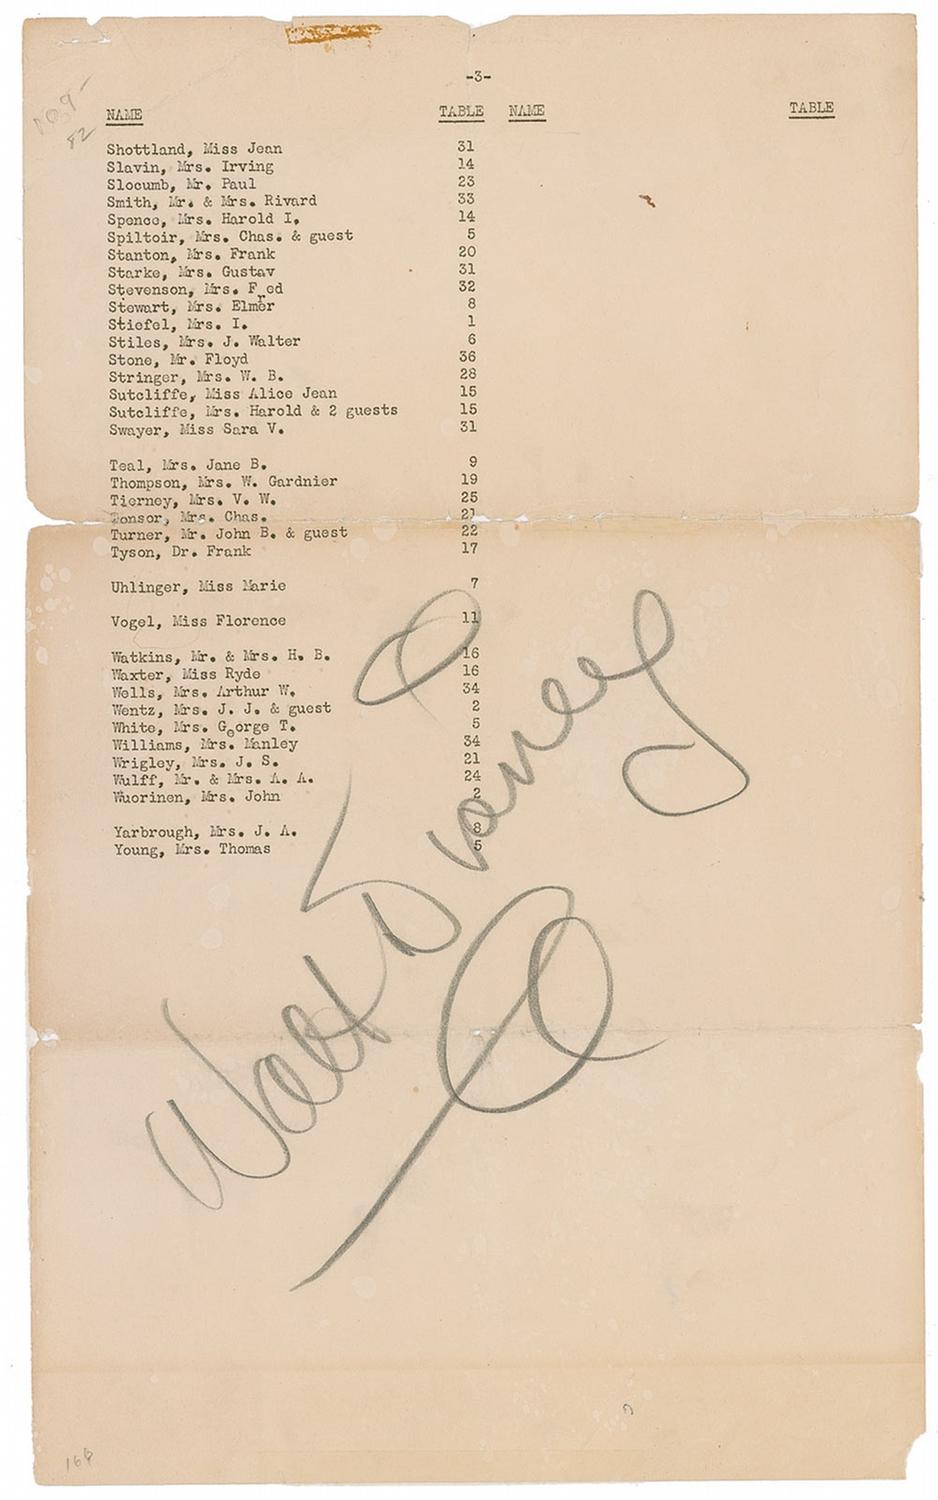 -3-
NAME TABLE NAME TABLE
Shottland, Miss Jean 31
Slavin, Mrs. Irving 14
Slocumb, Mr. Paul 23
Smith, Mr. & Mrs. Rivard 33
Spence, Mrs. Harold I. 14
Spiltoir, Mrs. Chas. & guest 5
Stanton, Mrs. Frank 20
Starke, Mrs. Gustav 31
Stevenson, Mrs. Fred 32
Stewart, Mrs. Elmer 8
Stiefel, Mrs. I. 1
Stiles, Mrs. J. Walter 6
Stone, Mr. Floyd 36
Stringer, Mrs. W. B. 28
Sutcliffe, Miss Alice Jean 15
Sutcliffe, Mrs. Harold & 2 guests 15
Swayer, Miss Sara V. 31
Teal, Mrs. Jane B. 9
Thompson, Mrs. W. Gardnier 19
Tierney, Mrs. V. W. 25
Tonsor, Mrs. Chas. 21
Turner, Mr. John B. & guest 22
Tyson, Dr. Frank 17
Uhlinger, Miss Marie 7
Vogel, Miss Florence 11
Watkins, Mr. & Mrs. H. B. 16
Waxter, Miss Ryde 16
Wells, Mrs. Arthur W. 34
Wentz, Mrs. J. J. & guest 2
White, Mrs. George T. 5
Williams, Mrs. Manley 34
Wrigley, Mrs. J. S. 21
Wulff, Mr. & Mrs. A. A. 24
Wuorinen, Mrs. John 2
Yarbrough, Mrs. J. A. 8
Young, Mrs. Thomas 5
Walt Disney